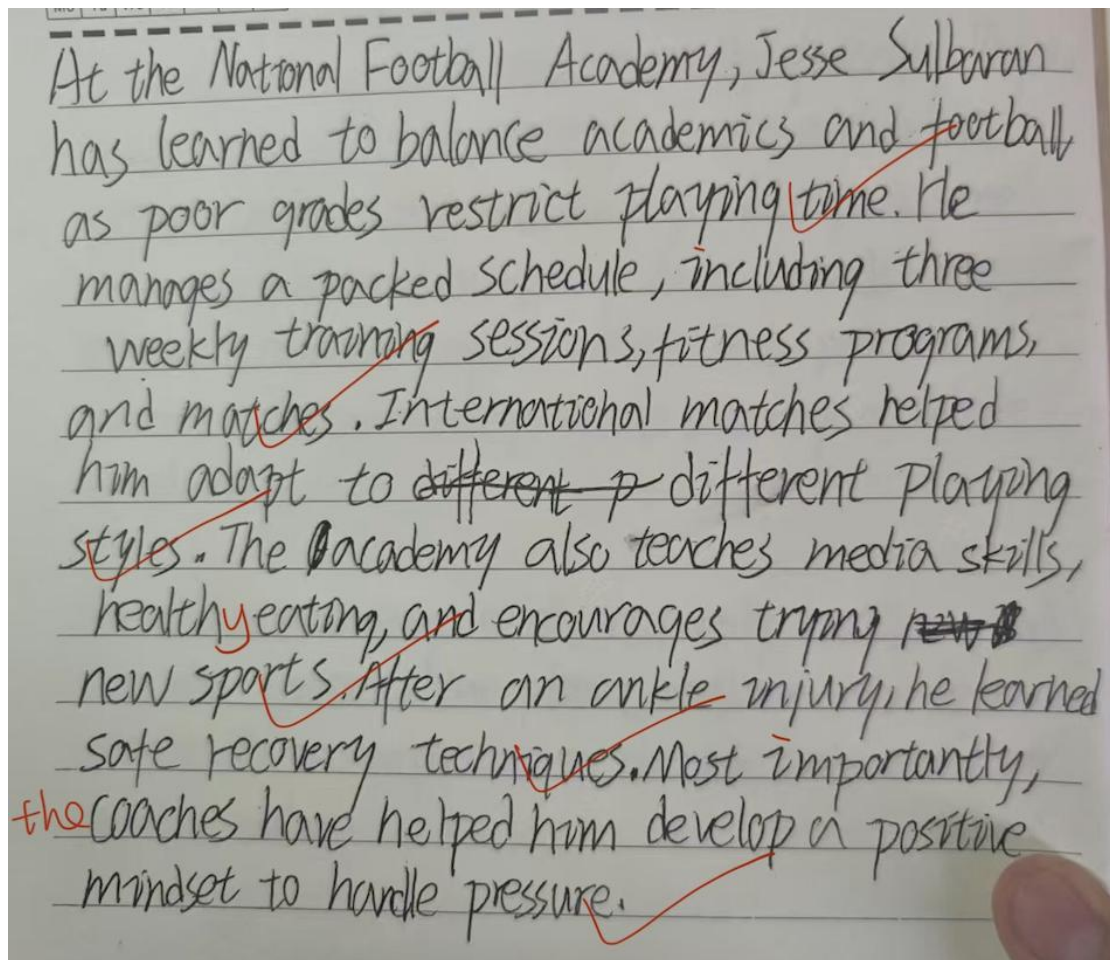 At the National Football Academy, Jesse Sulbaran
has learned to balance academics and football
as poor grades restrict playing time. He
manages a packed schedule, including three
weekly training sessions, fitness programs,
and matches. International matches helped
him adapt to different p different playing
styles. The academy also teaches media skills,
healthy eating, and encourages trying new
new sports. After an ankle injury, he learned
safe recovery techniques. Most importantly,
the coaches have helped him develop a positive
mindset to handle pressure.